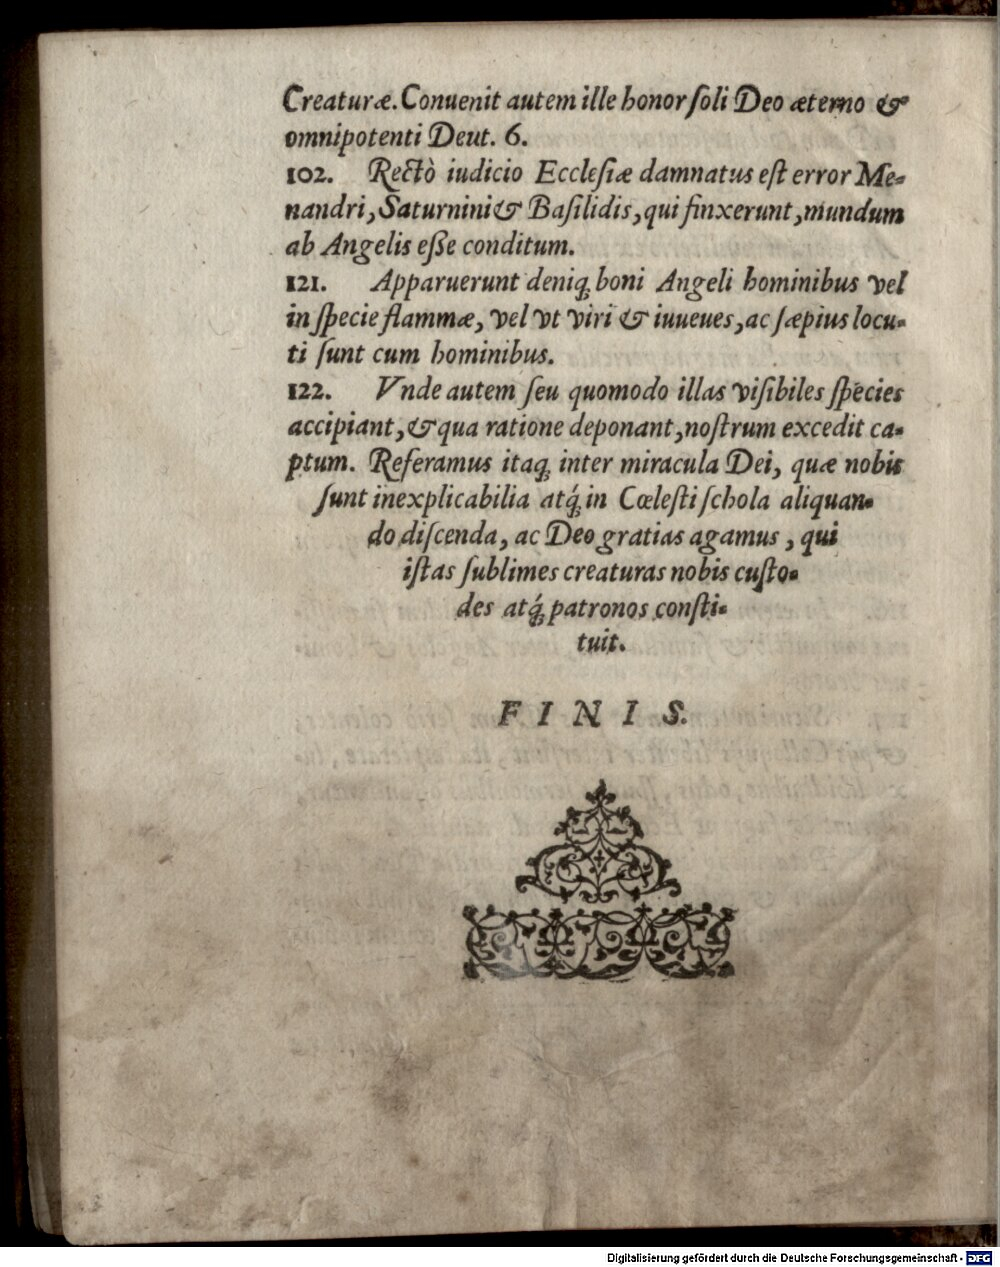 Creaturæ. Conuenit autem ille honor ſoli Deo æterno &
omnipotenti Deut. 6.
102. Rectò iudicio Eccleſiæ damnatus eſt error Me-
nandri, Saturnini & Baſilidis, qui finxerunt, mundum
ab Angelis eſſe conditum.
121. Apparuerunt deniq́; boni Angeli hominibus vel
in ſpecie flammæ, vel vt viri & iuueues, ac ſæpius locu-
ti ſunt cum hominibus.
122. Vnde autem ſeu quomodo illas viſibiles ſpecies
accipiant, & qua ratione deponant, noſtrum excedit ca-
ptum. Referamus itaq́; inter miracula Dei, quæ nobis
ſunt inexplicabilia atq́; in Cœleſti ſchola aliquan-
do diſcenda, ac Deo gratias agamus, qui
iſtas ſublimes creaturas nobis cuſto-
des atq́; patronos conſti-
tuit.
FINIS.
Digitalisierung gefördert durch die Deutsche Forschungsgemeinschaft - DFG